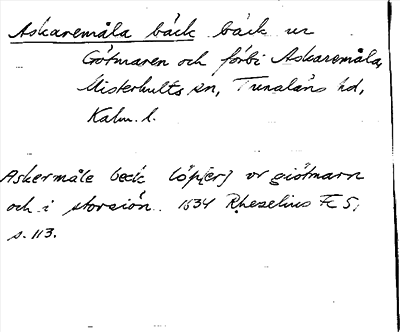 Askaremåla bäck bäck ur
Götmaren och förbi Askaremåla,
Misterhults sn, Tunaläns hd,
Kalm. l.
Askermåle beck löp[er] vr giötmarn
och i storsión. 1634 Rhezelius Fc 5,
s. 113.